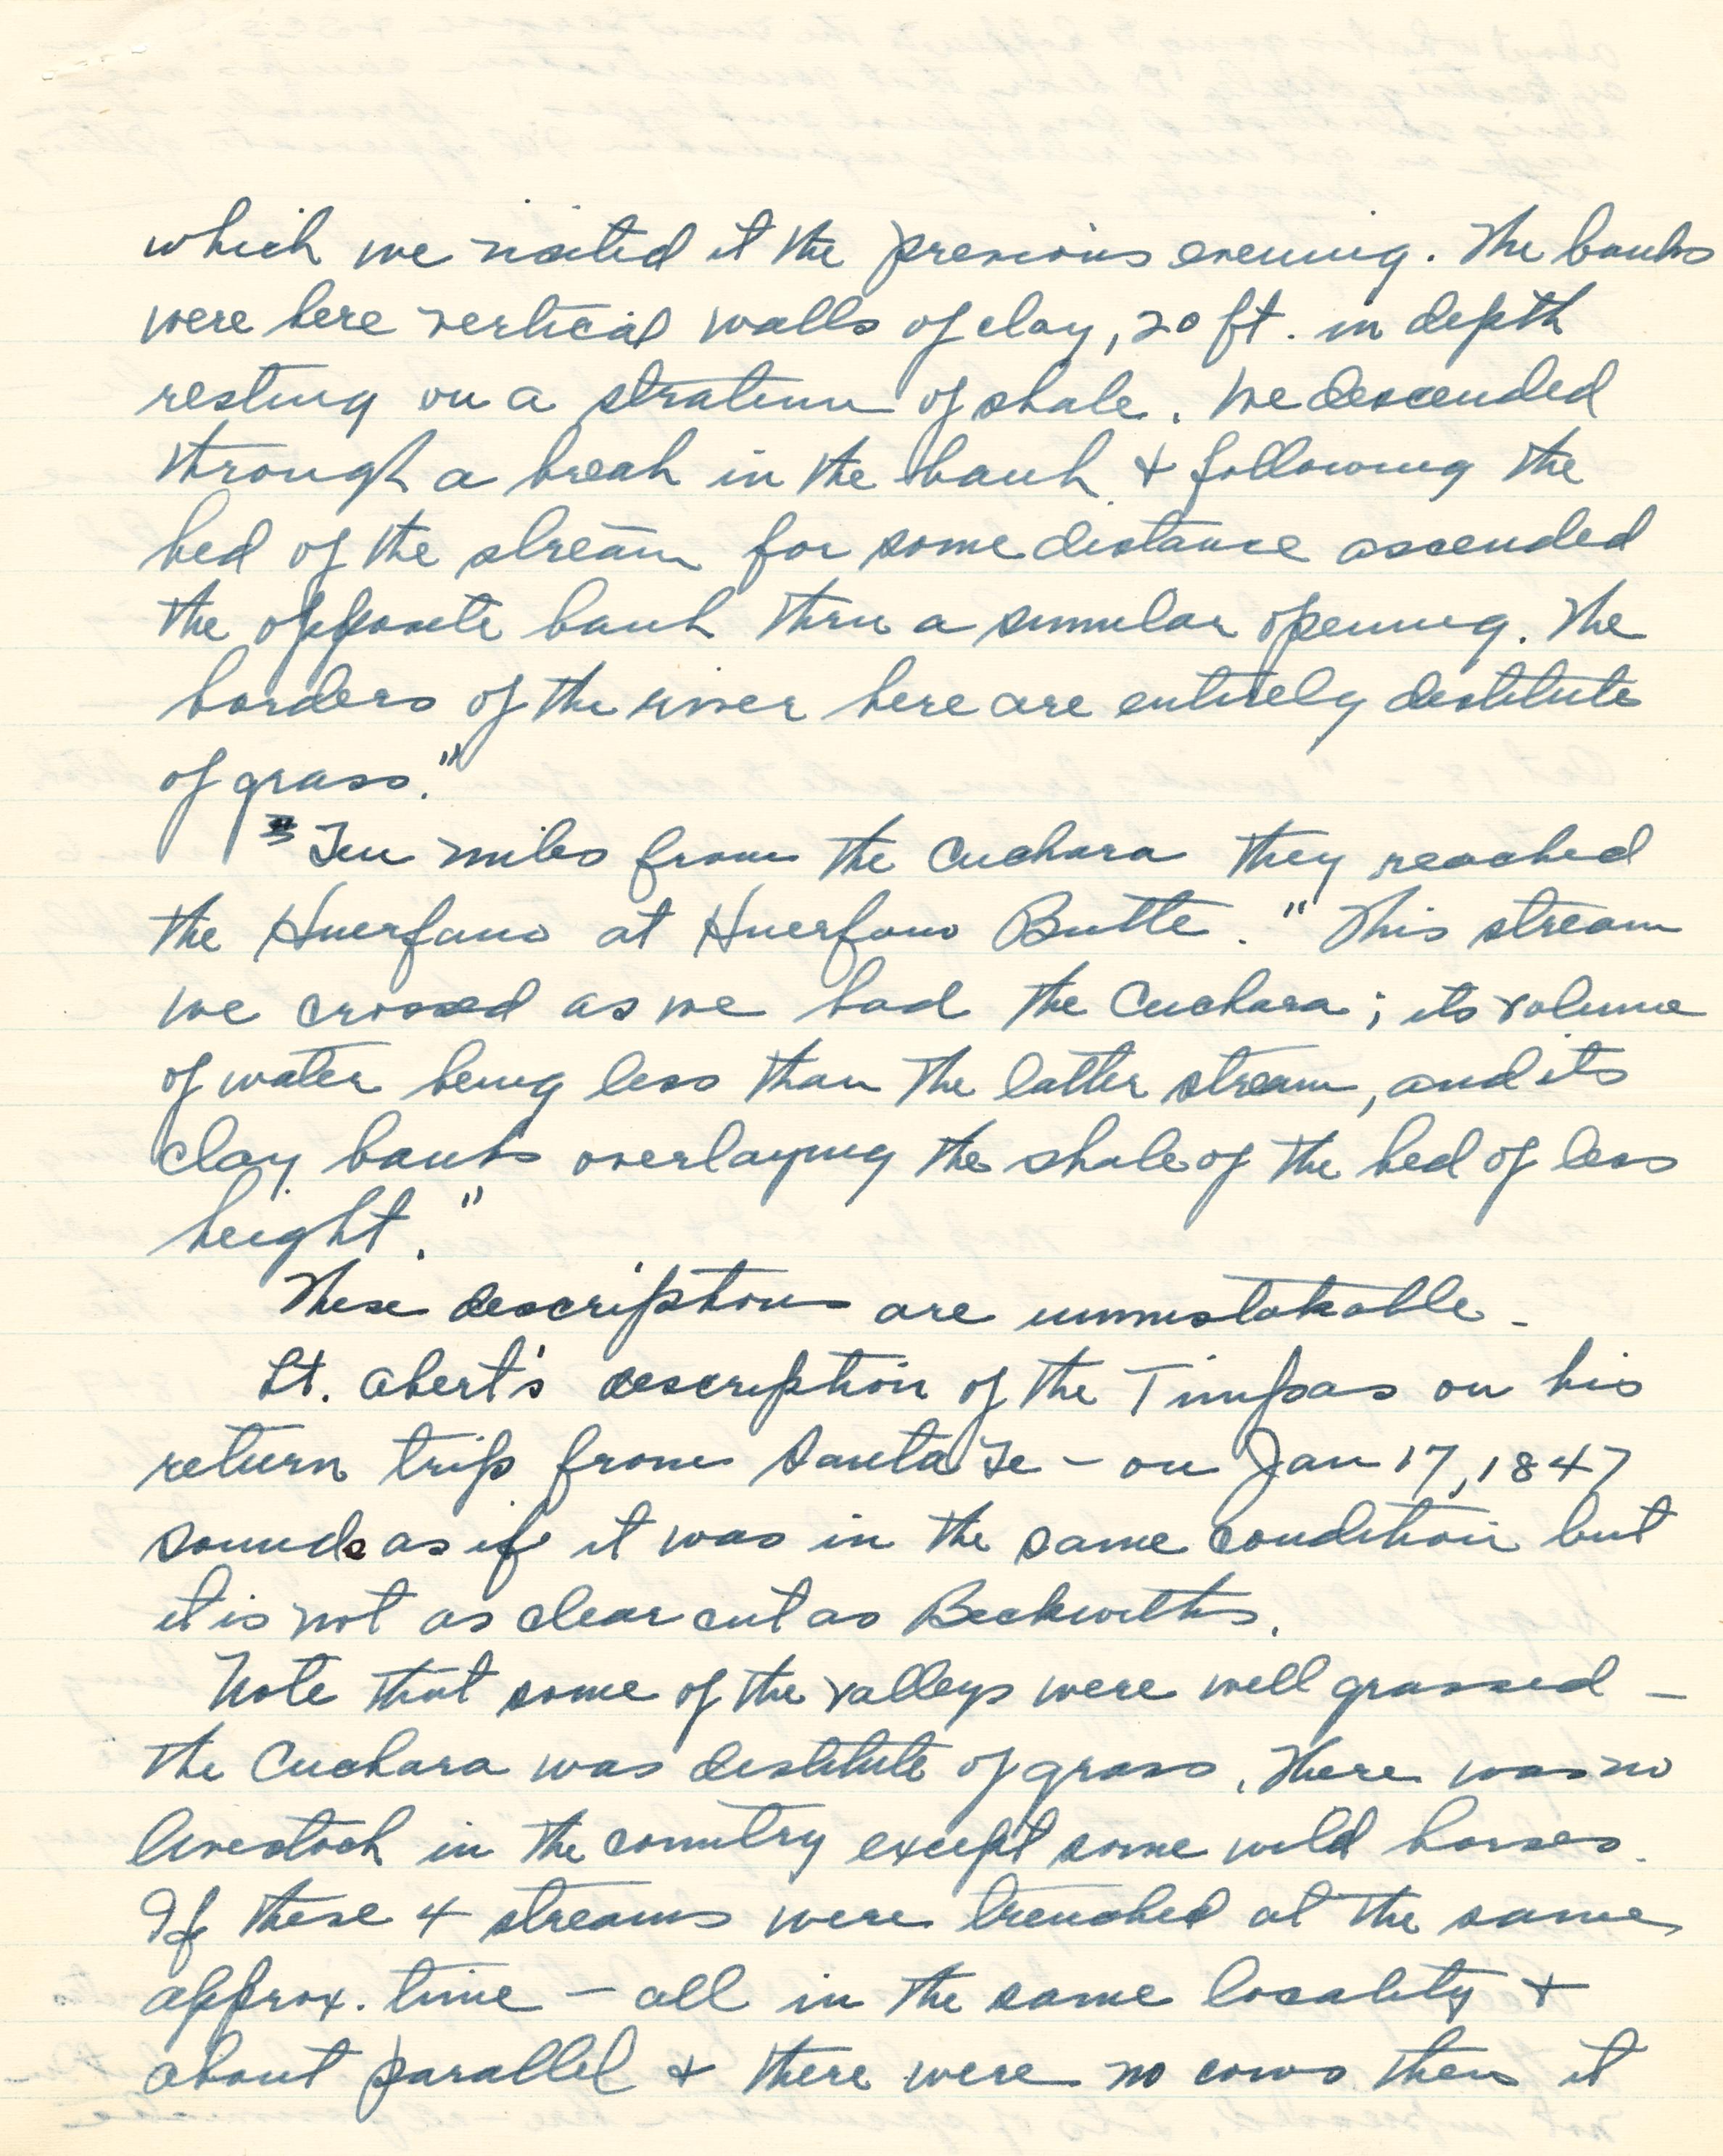 which we visited it the previous evening. The banks
were here vertical walls of clay, 20 ft. in depth
resting on a stratum of shale. We descended
through a break in the bank & following the
bed of the stream for some distance ascended
the opposite bank thru a similar opening. The
borders of the river here are entirely destitute
of grass."
Ten miles from the Cuchara they reached
the Huerfano at Huerfano Butte. "This stream
we crossed as we had the Cuchara; its volume
of water being less than the latter stream, and its
clay banks overlaying the shale of the bed of less
height."
These descriptions are unmistakable.
Lt. Abert's description of the Timpas on his
return trip from Santa Fe - on Jan 17, 1847
sounds as if it was in the same condition but
it is not as clear cut as Beckwiths.
Note that some of the valleys were well grassed -
the Cuchara was destitute of grass. There was no
livestock in the country except some wild horses.
If these 4 streams were trenched at the same
approx. time - all in the same locality &
about parallel & there were no cows then it